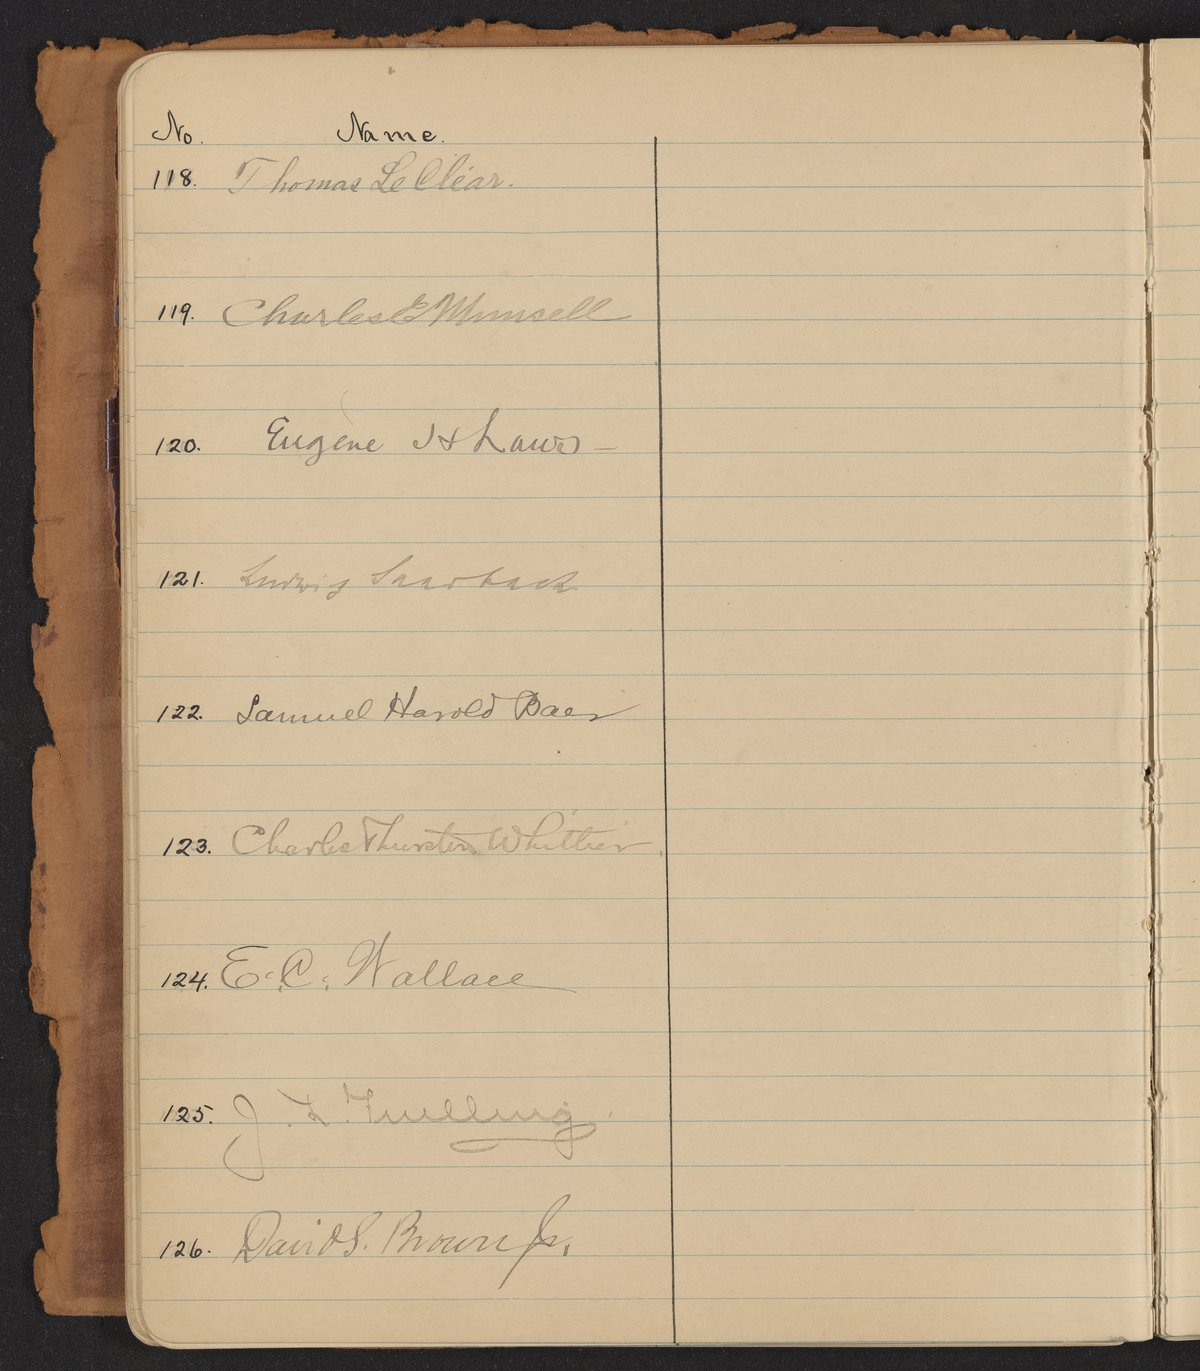 No. Name.
118. Thomas Le Clear.
119. Charles E Munsell
120. Eugene H Laws —
121. Ludwig Saarbach
122. Samuel Harold Baer
123. Charles Thurston Whittier
124. E. C. Wallace
125. J. L. Fuelling.
126. David S. Brown Jr.